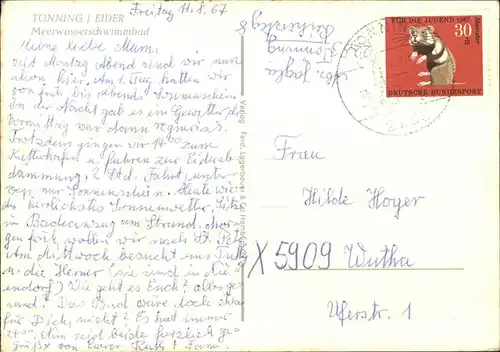 TÖNNING / EIDER
Meerwasserschwimmbad
Freitag 11.8.67
Meine liebe Mum,
seit Montag abend sind wir nun
schon hier. Am 1. Tag hatten wir
von früh bis abends Sonnenschein.
In der Nacht gab es ein Gewitter
Vormittag war dann regnerisch.
Trotzdem gingen wir 14⁰⁰ zum
Kutterhafen u. fuhren zur Eiderab-
dämmung, 2 Std. Fahrt, unter-
wegs nur Sonnenschein. Heute wie-
der herrlichstes Sonnenwetter. Sitze
im Badeanzug am Strand. Mor-
gen früh wollen wir nach St. Pet
Am Mittwoch besucht uns
u. die (sie sind in
dorf) Wie geht es Euch? alles ge-
sund? Das Bad wäre doch etwas
für Dich, nicht? Es hat immer
24°. Nun seid beide herzlich ge-
grüßt von Eurer Ruth +
Verlag Ferd. Lagerbauer & Co. Hamburg
Tönning
FÜR DIE JUGEND 1967
30
+15
Hamster
DEUTSCHE BUNDESPOST
Frau
Hilde Hoyer
X 5909 Wutha
Uferstr. 1